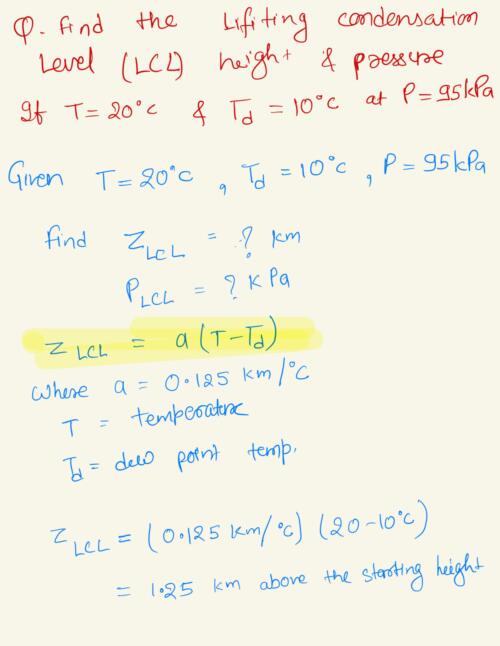 Q. Find the Lifiting condensation
Level (LCL) height & pressure
If T = 20°C & Td = 10°C at P = 95kPa
Given T = 20°C , Td = 10°C , P = 95kPa
find ZLCL = ? km
PLCL = ? kPa
ZLCL = a (T - Td)
Where a = 0.125 km/°C
T = temperature
Td = dew point temp.
ZLCL = (0.125 km/°C) (20-10°C)
= 1.25 km above the starting height